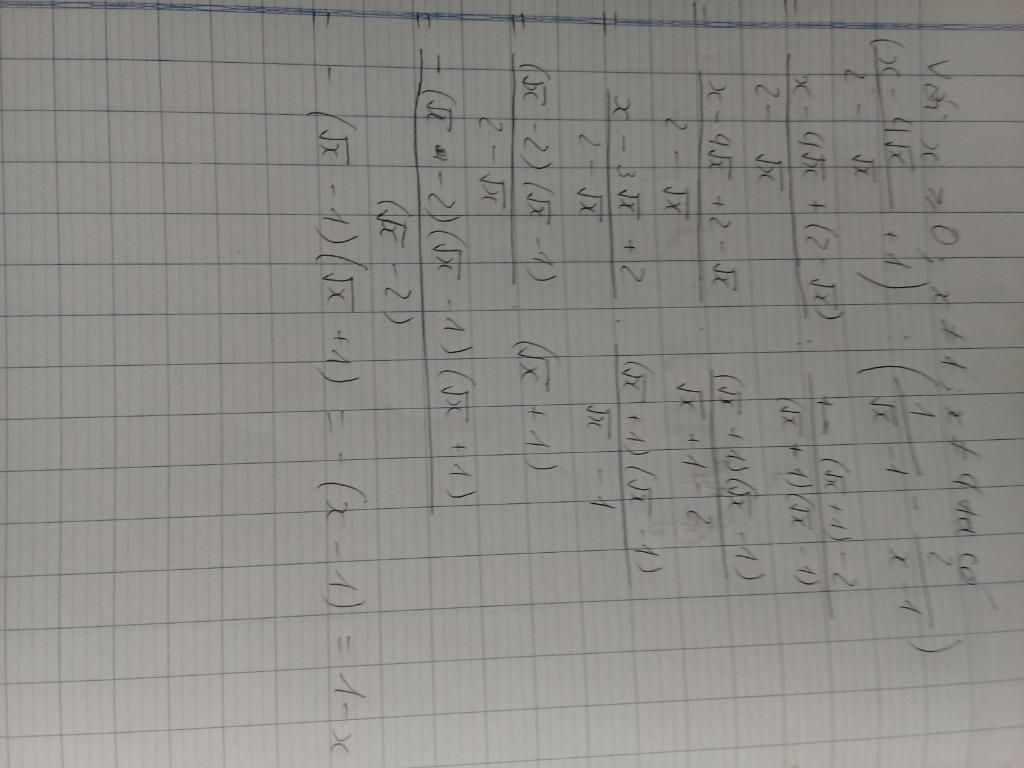 Với x ≥ 0; x ≠ 1; x ≠ 4 ta có
(\frac{x - 4\sqrt{x}}{2 - \sqrt{x}} + 1) : (\frac{1}{\sqrt{x} - 1} - \frac{2}{x - 1})
= \frac{x - 4\sqrt{x} + (2 - \sqrt{x})}{2 - \sqrt{x}} : \frac{(\sqrt{x} + 1) - 2}{(\sqrt{x} + 1)(\sqrt{x} - 1)}
= \frac{x - 4\sqrt{x} + 2 - \sqrt{x}}{2 - \sqrt{x}} . \frac{(\sqrt{x} + 1)(\sqrt{x} - 1)}{\sqrt{x} + 1 - 2}
= \frac{x - 3\sqrt{x} + 2}{2 - \sqrt{x}} . \frac{(\sqrt{x} + 1)(\sqrt{x} - 1)}{\sqrt{x} - 1}
= \frac{(\sqrt{x} - 2)(\sqrt{x} - 1)}{2 - \sqrt{x}} . (\sqrt{x} + 1)
= - \frac{(\sqrt{x} - 2)(\sqrt{x} - 1)(\sqrt{x} + 1)}{(\sqrt{x} - 2)}
= - (\sqrt{x} - 1)(\sqrt{x} + 1) = - (x - 1) = 1 - x